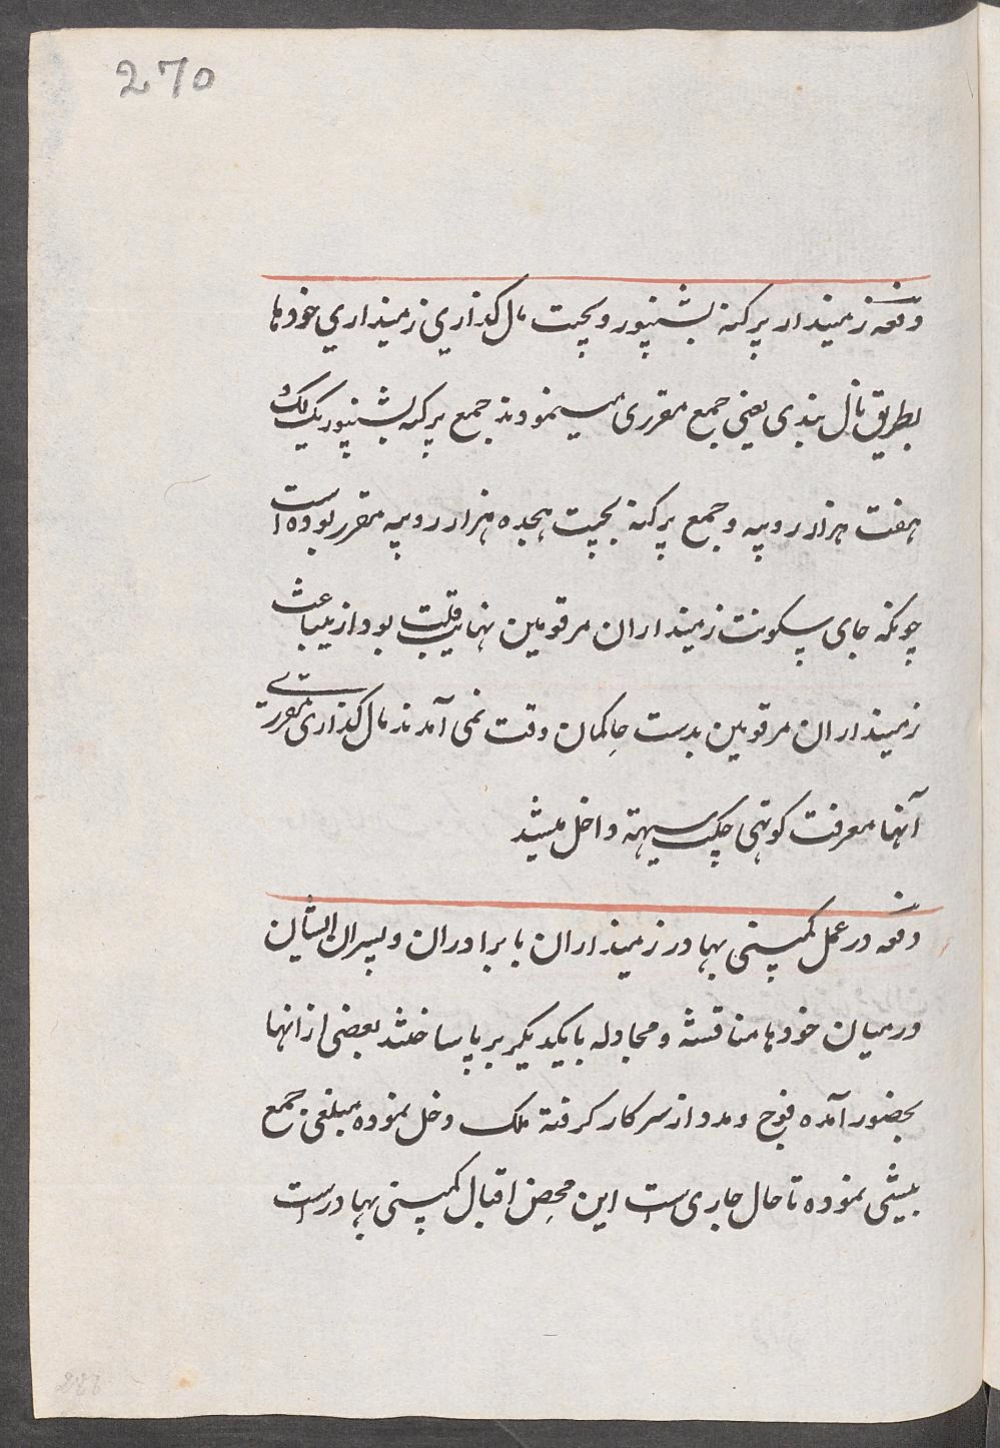 270
دفعه زمیندار پرکنه بشنپور و بچیت مال کذاری زمینداری خودها
بطریق نال بندی یعنی جمع مقرری مینمودند جمع پرکنه بشنپور یک لک
هفت هزار روپیه و جمع پرکنه بچیت هجده هزار روپیه مقرر بوده است
چونکه جای سکونت زمینداران مرقومین نهایت قلب بود ازینباعث
زمینداران مرقومین بدست حاکمان وقت نمی آمدند مال کذاری مقرری
آنها معرفت کوتهی جکت سیهته داخل میشد
دفعه در عمل کمپنی بهادر زمینداران با برادران و پسران ایشان
درمیان خودها مناقشه و مجادله با یکدیکر برپا ساختند بعضی ازانها
بحضور آمده فوج و مدد از سرکار کرفته ملک دخل نموده مبلغی جمع
بیشی نموده تا حال جاری ست این محض اقبال کمپنی بهادر است